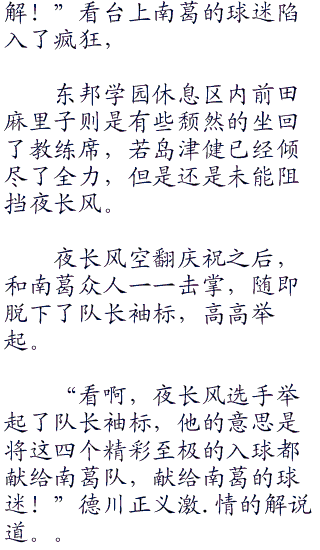 解！”看台上南葛的球迷陷
入了疯狂，
东邦学园休息区内前田
麻里子则是有些颓然的坐回
了教练席，若岛津健已经倾
尽了全力，但是还是未能阻
挡夜长风。
夜长风空翻庆祝之后，
和南葛众人一一击掌，随即
脱下了队长袖标，高高举
起。
“看啊，夜长风选手举
起了队长袖标，他的意思是
将这四个精彩至极的入球都
献给南葛队，献给南葛的球
迷！”德川正义激.情的解说
道。。